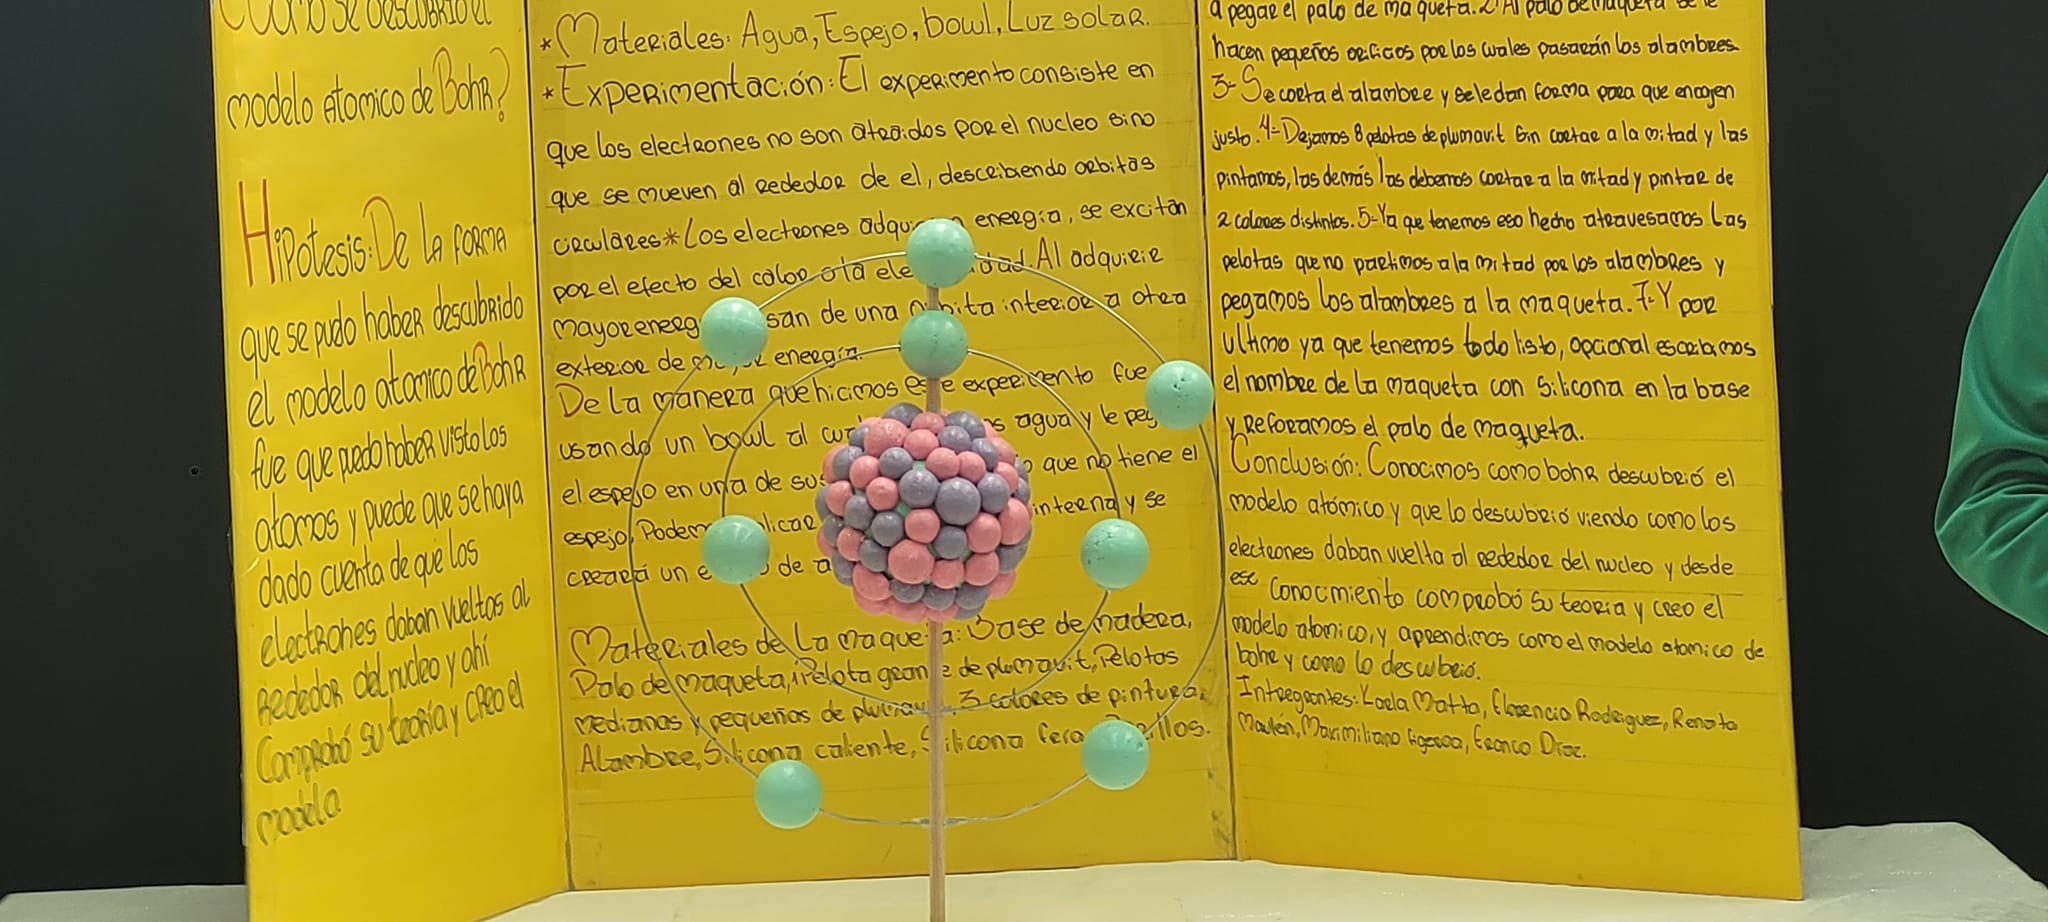 Como se descubrio el
modelo atomico de Bohr?
Hipotesis: De la forma
que se pudo haber descubrido
el modelo atomico de Bohr
fue que puedo haber visto los
atomos y puede que se haya
dado cuenta de que los
electrones daban vueltas al
rededor del nucleo y ahi
Comprobó su teoría y creo el
modelo
*Materiales: Agua, Espejo, bowl, Luz solar.
*Experimentación: El experimento consiste en
que los electrones no son atraidos por el nucleo sino
que se mueven al rededor de el, describiendo orbitas
circulares*Los electrones adqu energía, se excitan
por el efecto del calor o la ele idad. Al adquirir
mayor energ san de una orbita interior a otra
exterior de energía.
De la manera que hicimos este experimento fue
usando un bowl al agua y le peg
el espejo en una de sus que no tiene el
espejo, Podem licar interna y se
creará un e de a
Materiales de la maqueta: Base de madera,
Palo de maqueta, 1 Pelota grande de plumavit, Pelotas
medianas y pequeñas de plumav, 3 colores de pintura,
Alambre, Silicona caliente, Silicona illos.
a pegar el palo de maqueta. 2- Al palo de maqueta se le
hacen pequeños orificios por los cuales pasarán los alambres
3- Se corta el alambre y se le dan forma para que encajen
justo. 4- Dejamos 8 pelotas de plumavit sin cortar a la mitad y las
pintamos, las demás las debemos cortar a la mitad y pintar de
2 colores distintos. 5- Ya que tenemos eso hecho atravesamos las
pelotas que no partimos a la mitad por los alambres y
pegamos los alambres a la maqueta. 7- Y por
ultimo ya que tenemos todo listo, opcional escribimos
el nombre de la maqueta con silicona en la base
y reforamos el palo de maqueta.
Conclusión: Conocimos como bohr descubrió el
modelo atómico y que lo descubrió viendo como los
electrones daban vuelta al rededor del nucleo y desde
ese conocimiento comprobó su teoria y creo el
modelo atomico, y aprendimos como el modelo atomico de
bohr y como lo descubrió.
Integrantes: Karla Matta, Florencia Rodriguez, Renata
Maulén, Maximiliano Figeroa, Franco Díaz.